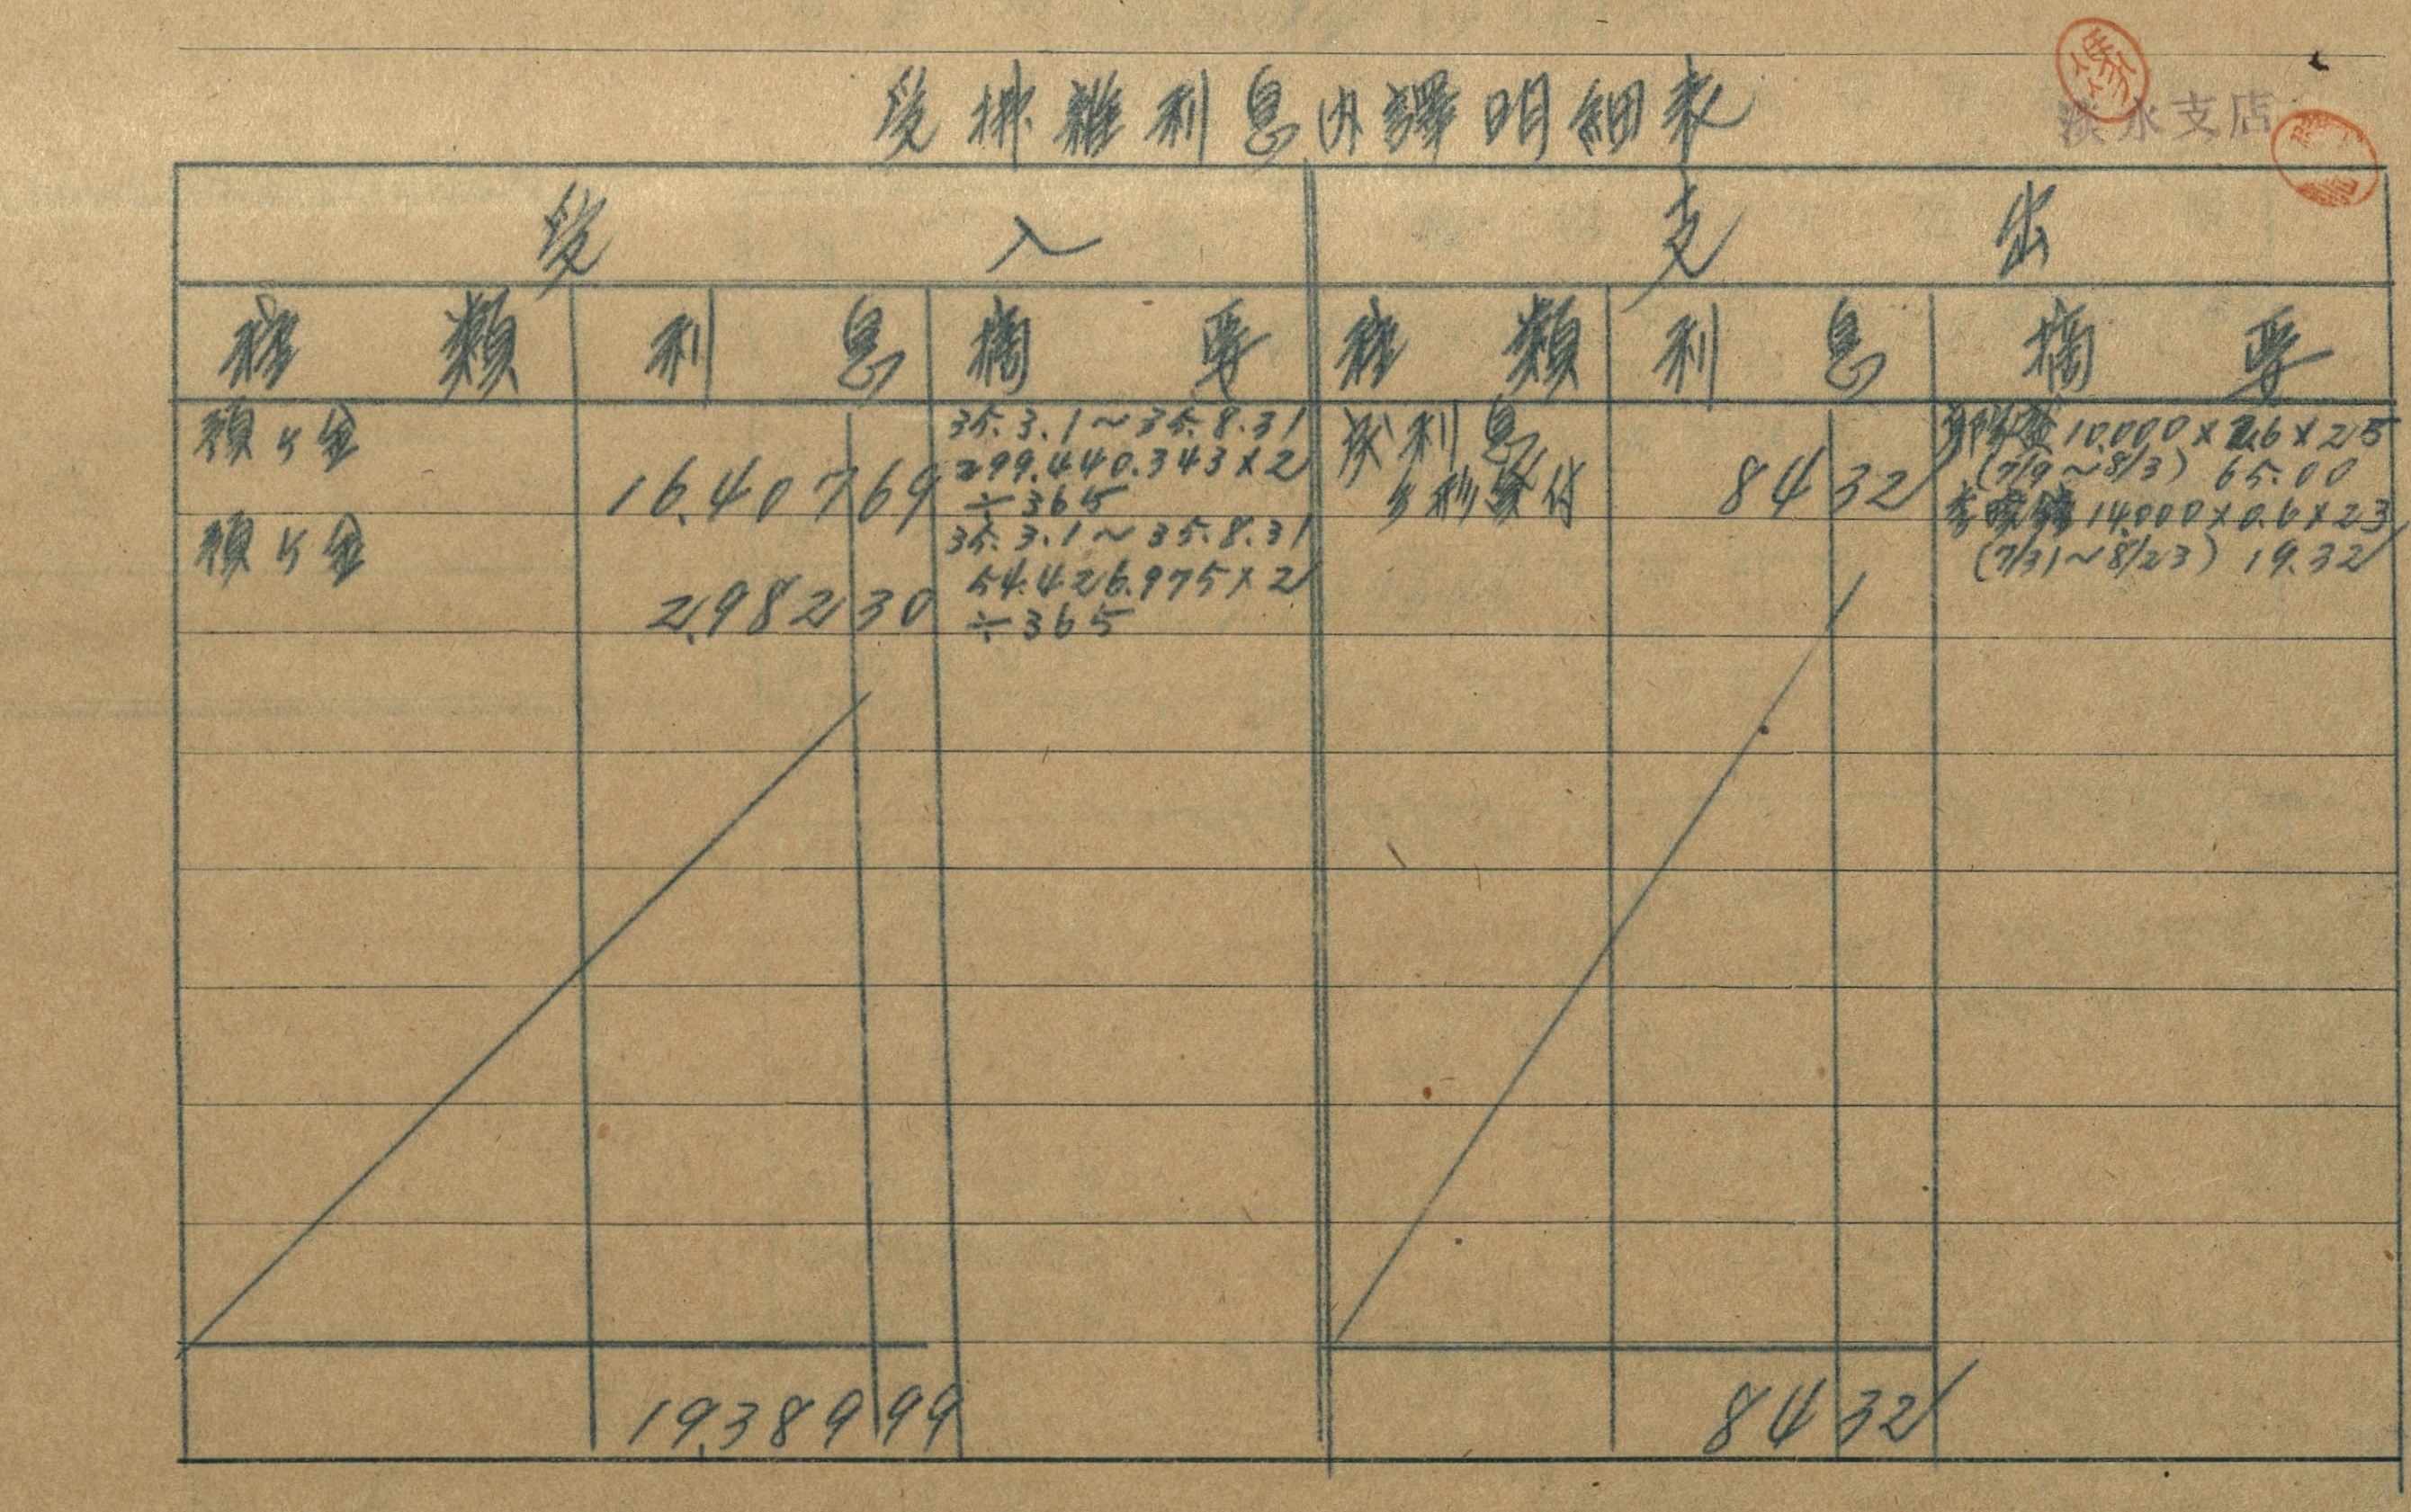 受拂雜利息内譯明細表
淡水支店
受入 支出
種類 利息 摘要 種類 利息 摘要
預ケ金 16,407 69 35.3.1～35.8.31
299.440.343×2
÷365
預ケ金 2,982 30 35.3.1～35.8.31
54.426.975×2
÷365
利息 84 32 10.000×2.6×25
(7/9～8/3) 65.00
14.000×0.6×23
(7/31～8/23) 19.32
19,389 99 84 32